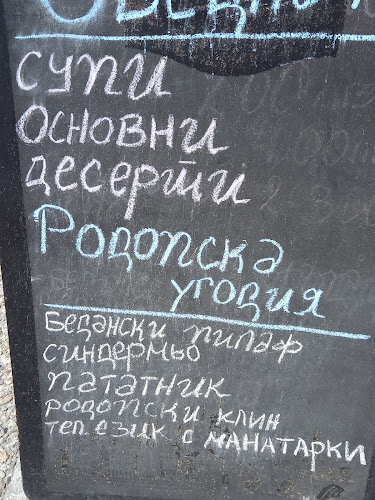 супи
основни
десерти
Родопска
угодия
Бедански пилаф
синдермьо
пататник
родопски клин
тел. език с манатарки